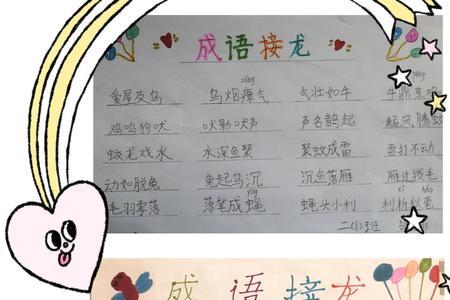 成语接龙
爱屋及乌 乌烟瘴气 气壮如牛 牛鼎烹鸡
鸡鸣狗吠 吠影吠声 声名鹊起 起凤腾蛟
蛟龙戏水 水深鱼聚 聚蚊成雷 雷打不动
动如脱兔 兔起乌沉 沉鱼落雁 雁过拔毛
毛羽零落 落笔成蝇 蝇头小利 利析秋毫
二(1)班
成语接龙